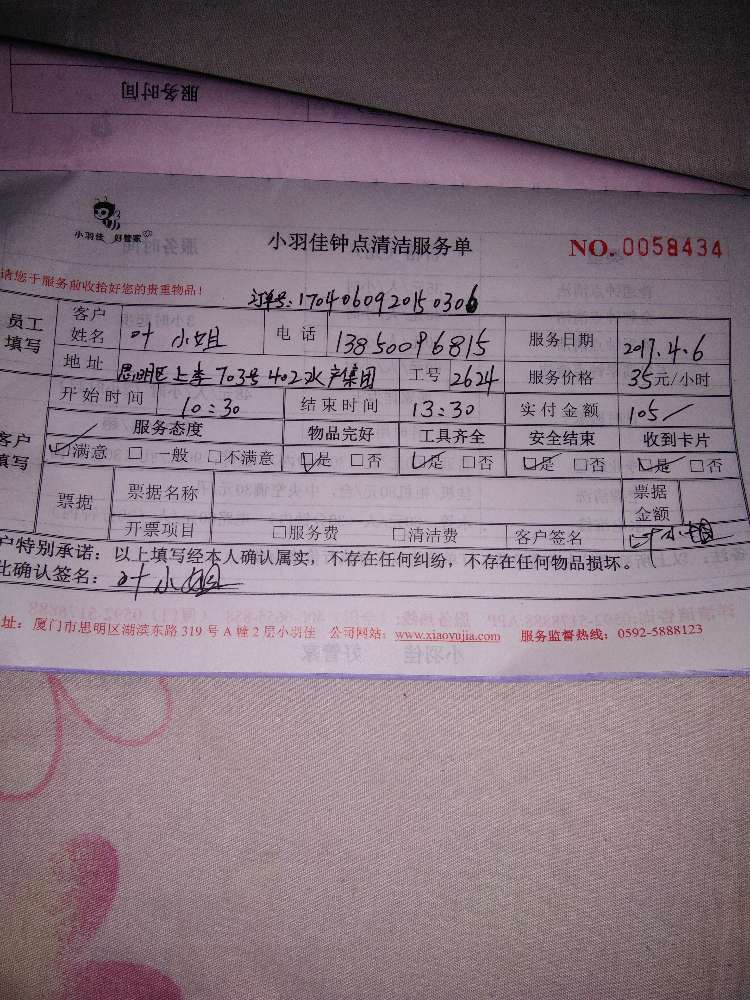 服务时间
小羽佳 好管家
小羽佳钟点清洁服务单
NO. 0058434
请您于服务前收拾好您的贵重物品!
订单号:1704060920150306
员工填写 客户姓名 叶小姐 电话 13850096815 服务日期 2017.4.6
地址 思明区上李703号402水产集团 工号 2624 服务价格 35元/小时
开始时间 10:30 结束时间 13:30 实付金额 105
客户填写 服务态度 物品完好 工具齐全 安全结束 收到卡片
☑满意 □一般 □不满意 ☑是 □否 ☑是 □否 ☑是 □否 ☑是 □否
票据 票据名称 票据金额
开票项目 □服务费 □清洁费 客户签名 叶小姐
户特别承诺:以上填写经本人确认属实,不存在任何纠纷,不存在任何物品损坏。
比确认签名:叶小姐
址:厦门市思明区湖滨东路319号A幢2层小羽佳 公司网站:www.xiaoyujia.com 服务监督热线:0592-5888123